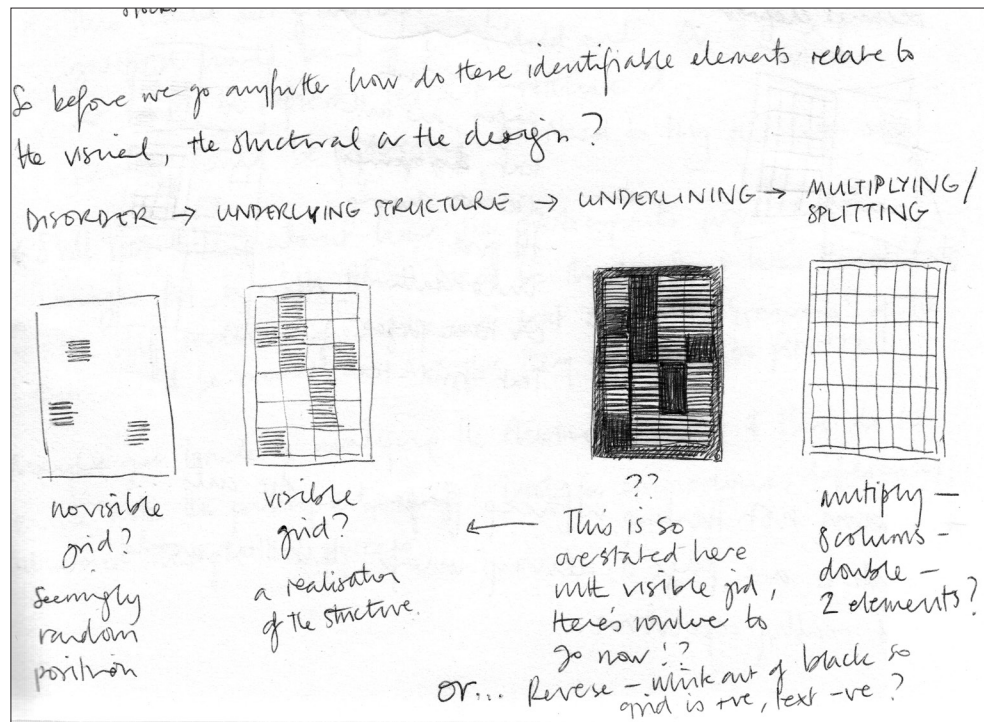 So before we go anyfurther how do these identifiable elements relate to
the visual, the structural or the design?
DISORDER → UNDERLYING STRUCTURE → UNDERLINING → MULTIPLYING/
SPLITTING
no visible
grid?
Seemingly
random
position
visible
grid?
a realisation
of the structure.
??
This is so
overstated here
with visible grid,
there's nowhere to
go now!?
multiply —
8 columns —
double —
2 elements?
or... Reverse — white out of black so
grid is +ve, text -ve?